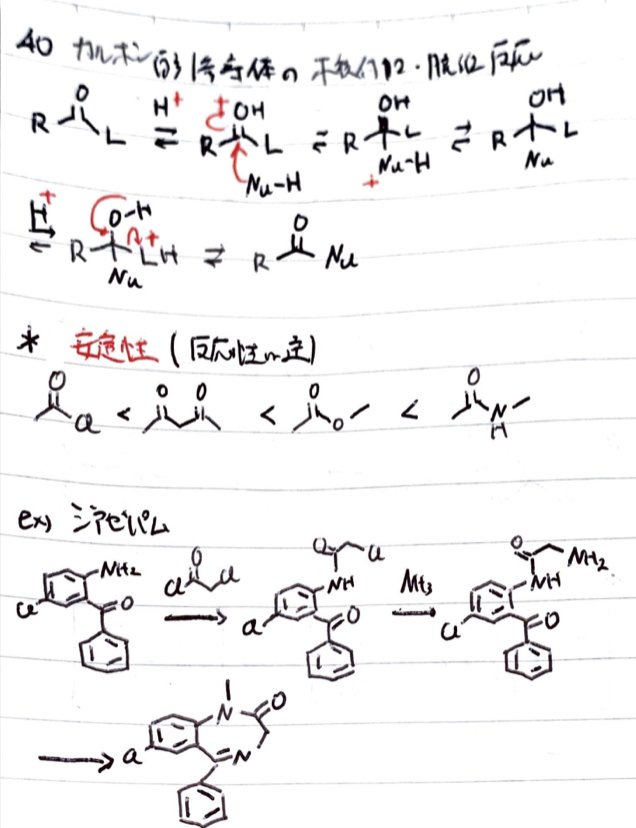 40 カルボン酸誘導体の求核付加・脱離反応
O H+ +OH OH OH
R L ⇌ R L ⇌ R L ⇌ R L
Nu-H + Nu-H Nu
H+ O-H O
⇌ R +LH ⇌ R Nu
Nu
* 安定性 (反応性の逆)
O O O O O
Cl < < O < N
H
ex) ジアゼパム
NH2 O Cl O Cl O NH2
Cl O Cl → NH NH3 → NH
Cl O Cl O
N O
→ Cl N